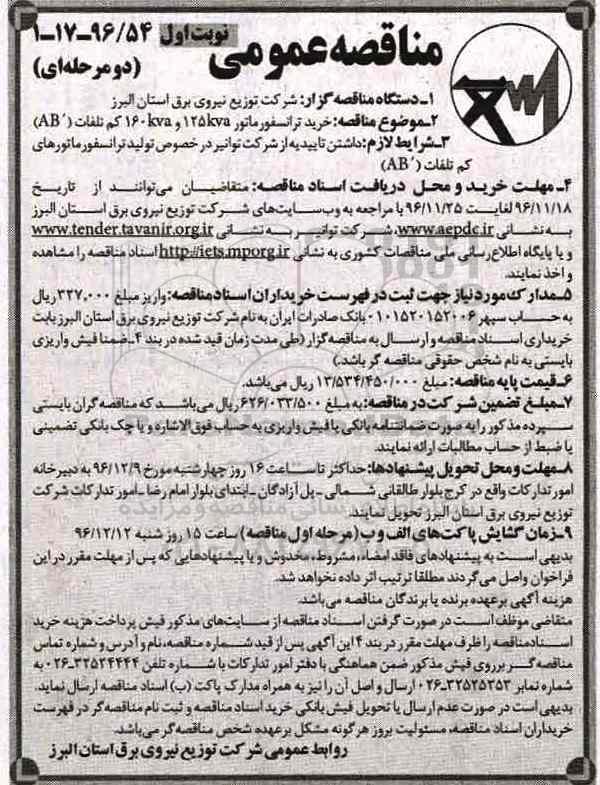 مناقصه عمومی نوبت اول ۹۶/۵۴-۱۷-۱
(دو مرحله‌ای)
۱-دستگاه مناقصه گزار: شرکت توزیع نیروی برق استان البرز
۲-موضوع مناقصه: خرید ترانسفورماتور ۱۲۵kva و ۱۶۰kva کم تلفات (AB´)
۳-شرایط لازم: داشتن تاییدیه از شرکت توانیر در خصوص تولید ترانسفورماتورهای
کم تلفات (AB´)
۴- مهلت خرید و محل دریافت اسناد مناقصه: متقاضیان می‌توانند از تاریخ
۹۶/۱۱/۱۸ لغایت ۹۶/۱۱/۲۵ با مراجعه به وب‌سایت‌های شرکت توزیع نیروی برق استان البرز
به نشانی www.aepdc.ir، شرکت توانیر به نشانی www.tender.tavanir.org.ir
و یا پایگاه اطلاع‌رسانی ملی مناقصات کشوری به نشانی http://iets.mporg.ir اسناد مناقصه را مشاهده
و اخذ نمایند.
۵-مدارک مورد نیاز جهت ثبت در فهرست خریداران اسناد مناقصه: واریز مبلغ ۳۲۷,۰۰۰ ریال
به حساب سپهر ۰۱۰۱۵۲۰۱۵۲۰۰۶ بانک صادرات ایران به نام شرکت توزیع نیروی برق استان البرز بابت
خریداری اسناد مناقصه و ارسال به مناقصه گزار (طی مدت زمان قید شده در بند ۴-ضمنا فیش واریزی
بایستی به نام شخص حقوقی مناقصه گر باشد.)
۶-قیمت پایه مناقصه: مبلغ ۱۳/۵۳۴/۴۵۰/۰۰۰ ریال می‌باشد.
۷-مبلغ تضمین شرکت در مناقصه: به مبلغ ۶۲۶/۰۳۳/۵۰۰ ریال می‌باشد که مناقصه گران بایستی
سپرده مذکور را به صورت ضمانتنامه بانکی یا فیش واریزی به حساب فوق الاشاره و یا چک بانکی تضمینی
یا ضبط از حساب مطالبات ارائه نمایند.
۸-مهلت و محل تحویل پیشنهادها: حداکثر تا ساعت ۱۶ روز چهارشنبه مورخ ۹۶/۱۲/۹ به دبیرخانه
امور تدارکات واقع در کرج بلوار طالقانی شمالی - پل آزادگان - ابتدای بلوار امام رضا - امور تدارکات شرکت
توزیع نیروی برق استان البرز تحویل نمایند.
۹-زمان گشایش پاکت‌های الف و ب (مرحله اول مناقصه) ساعت ۱۵ روز شنبه ۹۶/۱۲/۱۲
بدیهی است به پیشنهادهای فاقد امضاء، مشروط، مخدوش و یا پیشنهادهایی که پس از مهلت مقرر در این
فراخوان واصل می‌گردند مطلقا ترتیب اثر داده نخواهد شد.
هزینه آگهی برعهده برنده یا برندگان مناقصه می‌باشد.
متقاضی موظف است در صورت گرفتن اسناد مناقصه از سایت‌های مذکور فیش پرداخت هزینه خرید
اسناد مناقصه را ظرف مهلت مقرر در بند ۴ این آگهی پس از قید شماره مناقصه، نام و آدرس و شماره تماس
مناقصه گر بر روی فیش مذکور ضمن هماهنگی با دفتر امور تدارکات با شماره تلفن ۳۲۵۲۴۴۴۴-۰۲۶ به
شماره نمابر ۳۲۵۲۵۲۵۳-۰۲۶ ارسال و اصل آن را نیز به همراه مدارک پاکت (ب) اسناد مناقصه ارسال نماید.
بدیهی است در صورت عدم ارسال یا تحویل فیش بانکی خرید اسناد مناقصه و ثبت نام مناقصه گر در فهرست
خریداران اسناد مناقصه، مسئولیت بروز هرگونه مشکل برعهده شخص مناقصه گر می‌باشد.
روابط عمومی شرکت توزیع نیروی برق استان البرز